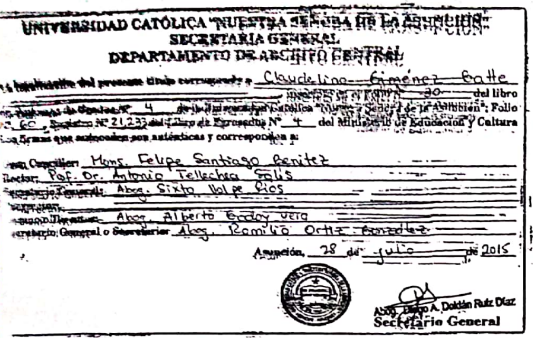 UNIVERSIDAD CATÓLICA "NUESTRA SEÑORA DE LA ASUNCIÓN"
SECRETARIA GENERAL
DEPARTAMENTO DE ARCHIVO CENTRAL
del presente título corresponde a Claudelino Giménez Gatte
30 del libro
Nº 4 Católica "Nuestra Señora de la Asunción"; Folio
Nº 60, Registro Nº 21,233 del Libro de Egresados Nº 4 del Ministerio de Educación y Cultura
Las firmas que anteceden son auténticas y corresponden a:
Gran Canciller: Mons. Felipe Santiago Benitez
Rector: Prof. Dr. Antonio Tellechea Solís
Secretario General: Abog. Sixto Volpe Ríos
Abog. Alberto Godoy Vera
General o Secretario Abog. Romilio Ortiz González
Asunción, 28 de julio de 2015
Abog. Diego A. Doldán Ruiz Díaz
Secretario General